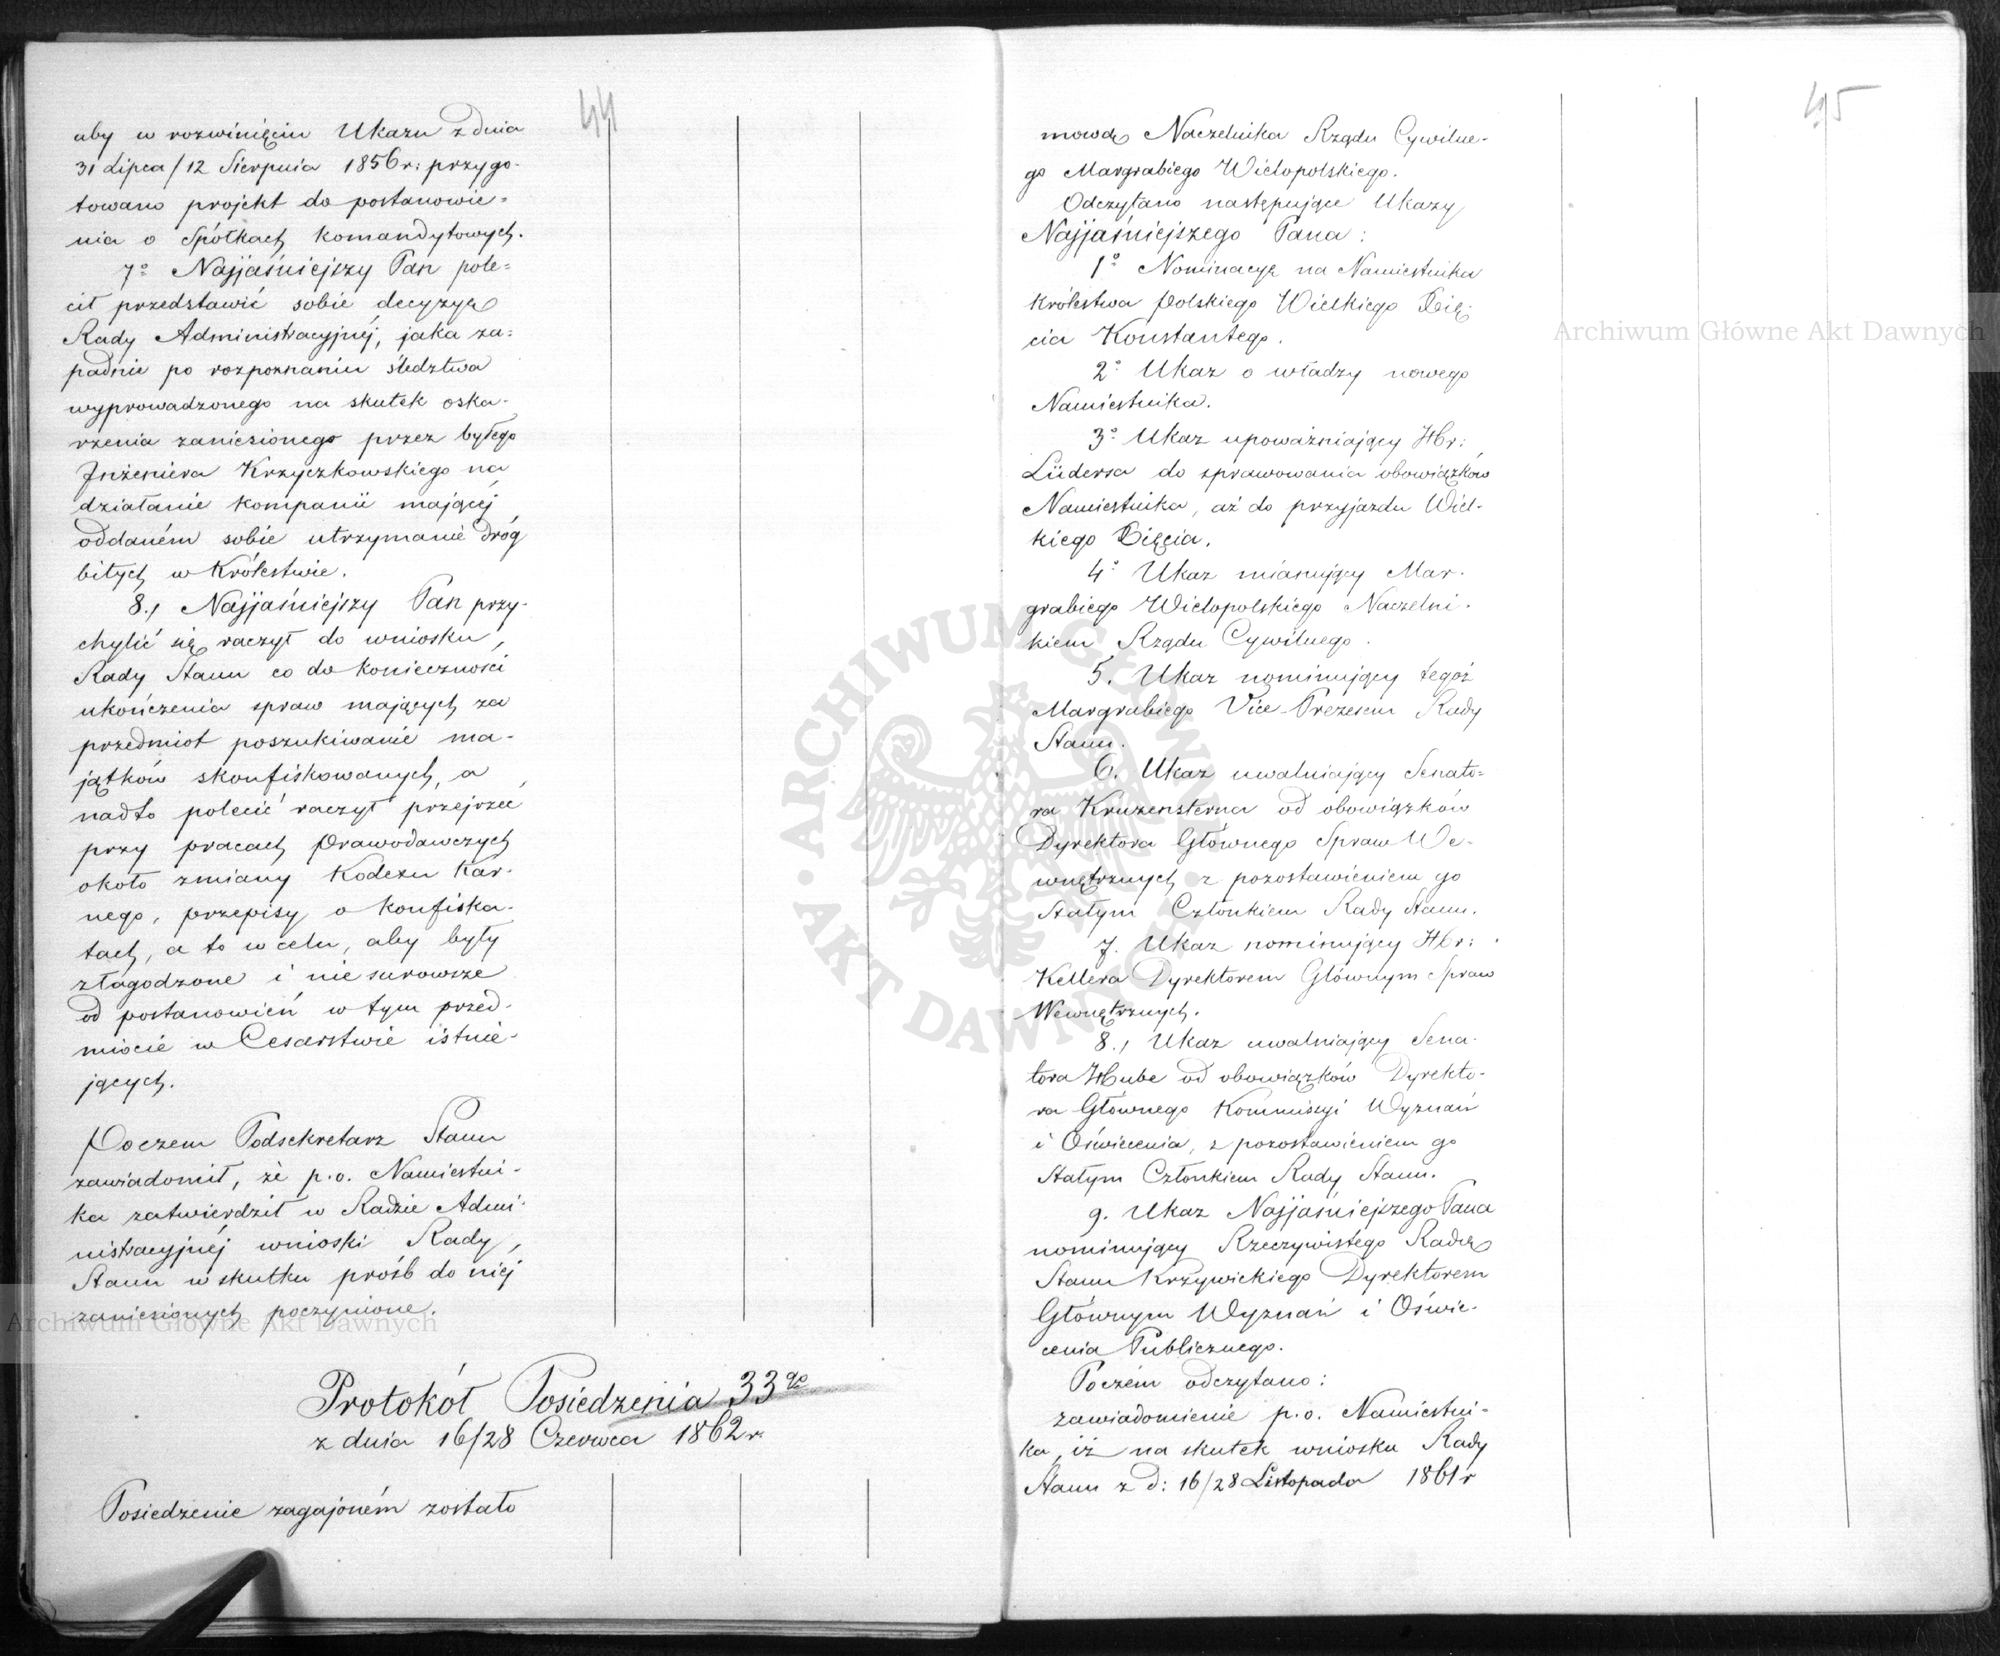 44
aby w rozwinięciu Ukazu z dnia
31 Lipca/12 Sierpnia 1856 r: przygo-
towano projekt do postanowie-
nia o Spółkach komandytowych.
7o Najjaśniejszy Pan pole-
cił przedstawić sobie decyzyą
Rady Administracyjnéj, jaka za-
padnie po rozpoznaniu śledztwa
wyprowadzonego na skutek oska-
rzenia zaniesionego przez byłego
Inżeniera Krzyczkowskiego na
działanie kompanii mającéj
oddaném sobie utrzymanie dróg
bitych w Królestwie.
8., Najjaśniejszy Pan przy-
chylić się raczył do wniosku,
Rady Stanu co do konieczności
ukończenia spraw mających za
przedmiot poszukiwanie ma-
jątków skonfiskowanych, a
nadto polecić raczył przejrzeć
przy pracach Prawodawczych
około zmiany Kodexu Kar-
nego, przepisy o konfiska-
tach, a to w celu, aby były
złagodzone i nie surowsze
od postanowień w tym przed-
miocie w Cesarstwie istnie-
jących.
Poczem Podsekretarz Stanu
zawiadomił, że p.o. Namiestni-
ka zatwierdził w Radzie Admi-
nistracyjnéj wnioski Rady,
Stanu w skutku próśb do niéj
zaniesionych poczynione.
Protokół Posiedzenia 33go
z dnia 16/28 Czerwca 1862 r.
Posiedzenie zagajoném zostało
45
mową Naczelnika Rządu Cywilne-
go Margrabiego Wielopolskiego.
Odczytano następujące Ukazy
Najjaśniejszego Pana:
1o Nominacyą na Namiestnika
Królestwa Polskiego Wielkiego Xię-
cia Konstantego.
2o Ukaz o władzy nowego
Namiestnika.
3o Ukaz upoważniający Hr:
Lüdersa do sprawowania obowiązków
Namiestnika, aż do przyjazdu Wiel-
kiego Xięcia.
4o Ukaz mianujący Mar-
grabiego Wielopolskiego Naczelni-
kiem Rządu Cywilnego.
5. Ukaz nominujący tegoż
Margrabiego Vice-Prezesem Rady
Stanu.
6. Ukaz uwalniający Senato-
ra Kruzensterna od obowiązków
Dyrektora Głównego Spraw We-
wnętrznych z pozostawieniem go
Stałym Członkiem Rady Stanu.
7. Ukaz nominujący Hr:
Kellera Dyrektorem Głównym Spraw
Wewnętrznych.
8., Ukaz uwalniający Sena-
tora Hube od obowiązków Dyrekto-
ra Głównego Kommissyi Wyznań
i Oświecenia, z pozostawieniem go
Stałym Członkiem Rady Stanu.
9. Ukaz Najjaśniejszego Pana
nominujący Rzeczywistego Radcę
Stanu Krzywickiego Dyrektorem
Głównym Wyznań i Oświe-
cenia Publicznego.
Poczém odczytano:
zawiadomienie p.o. Namiestni-
ka, iż na skutek wniosku Rady
Stanu z d: 16/28 Listopada 1861 r
Archiwum Główne Akt Dawnych
Archiwum Główne Akt Dawnych
ARCHIWUM GŁÓWNE
AKT DAWNYCH